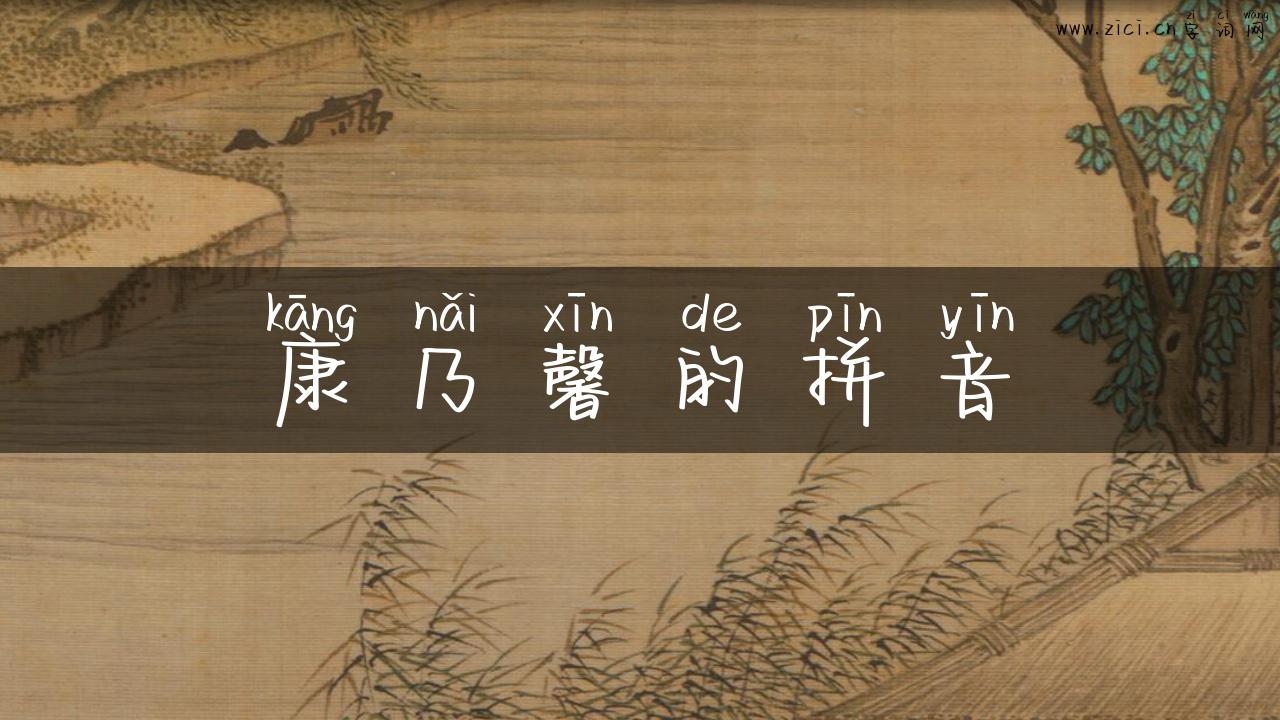 zì cí wǎng
www.zici.cn字词网
kāng nǎi xīn de pīn yīn
康乃馨的拼音